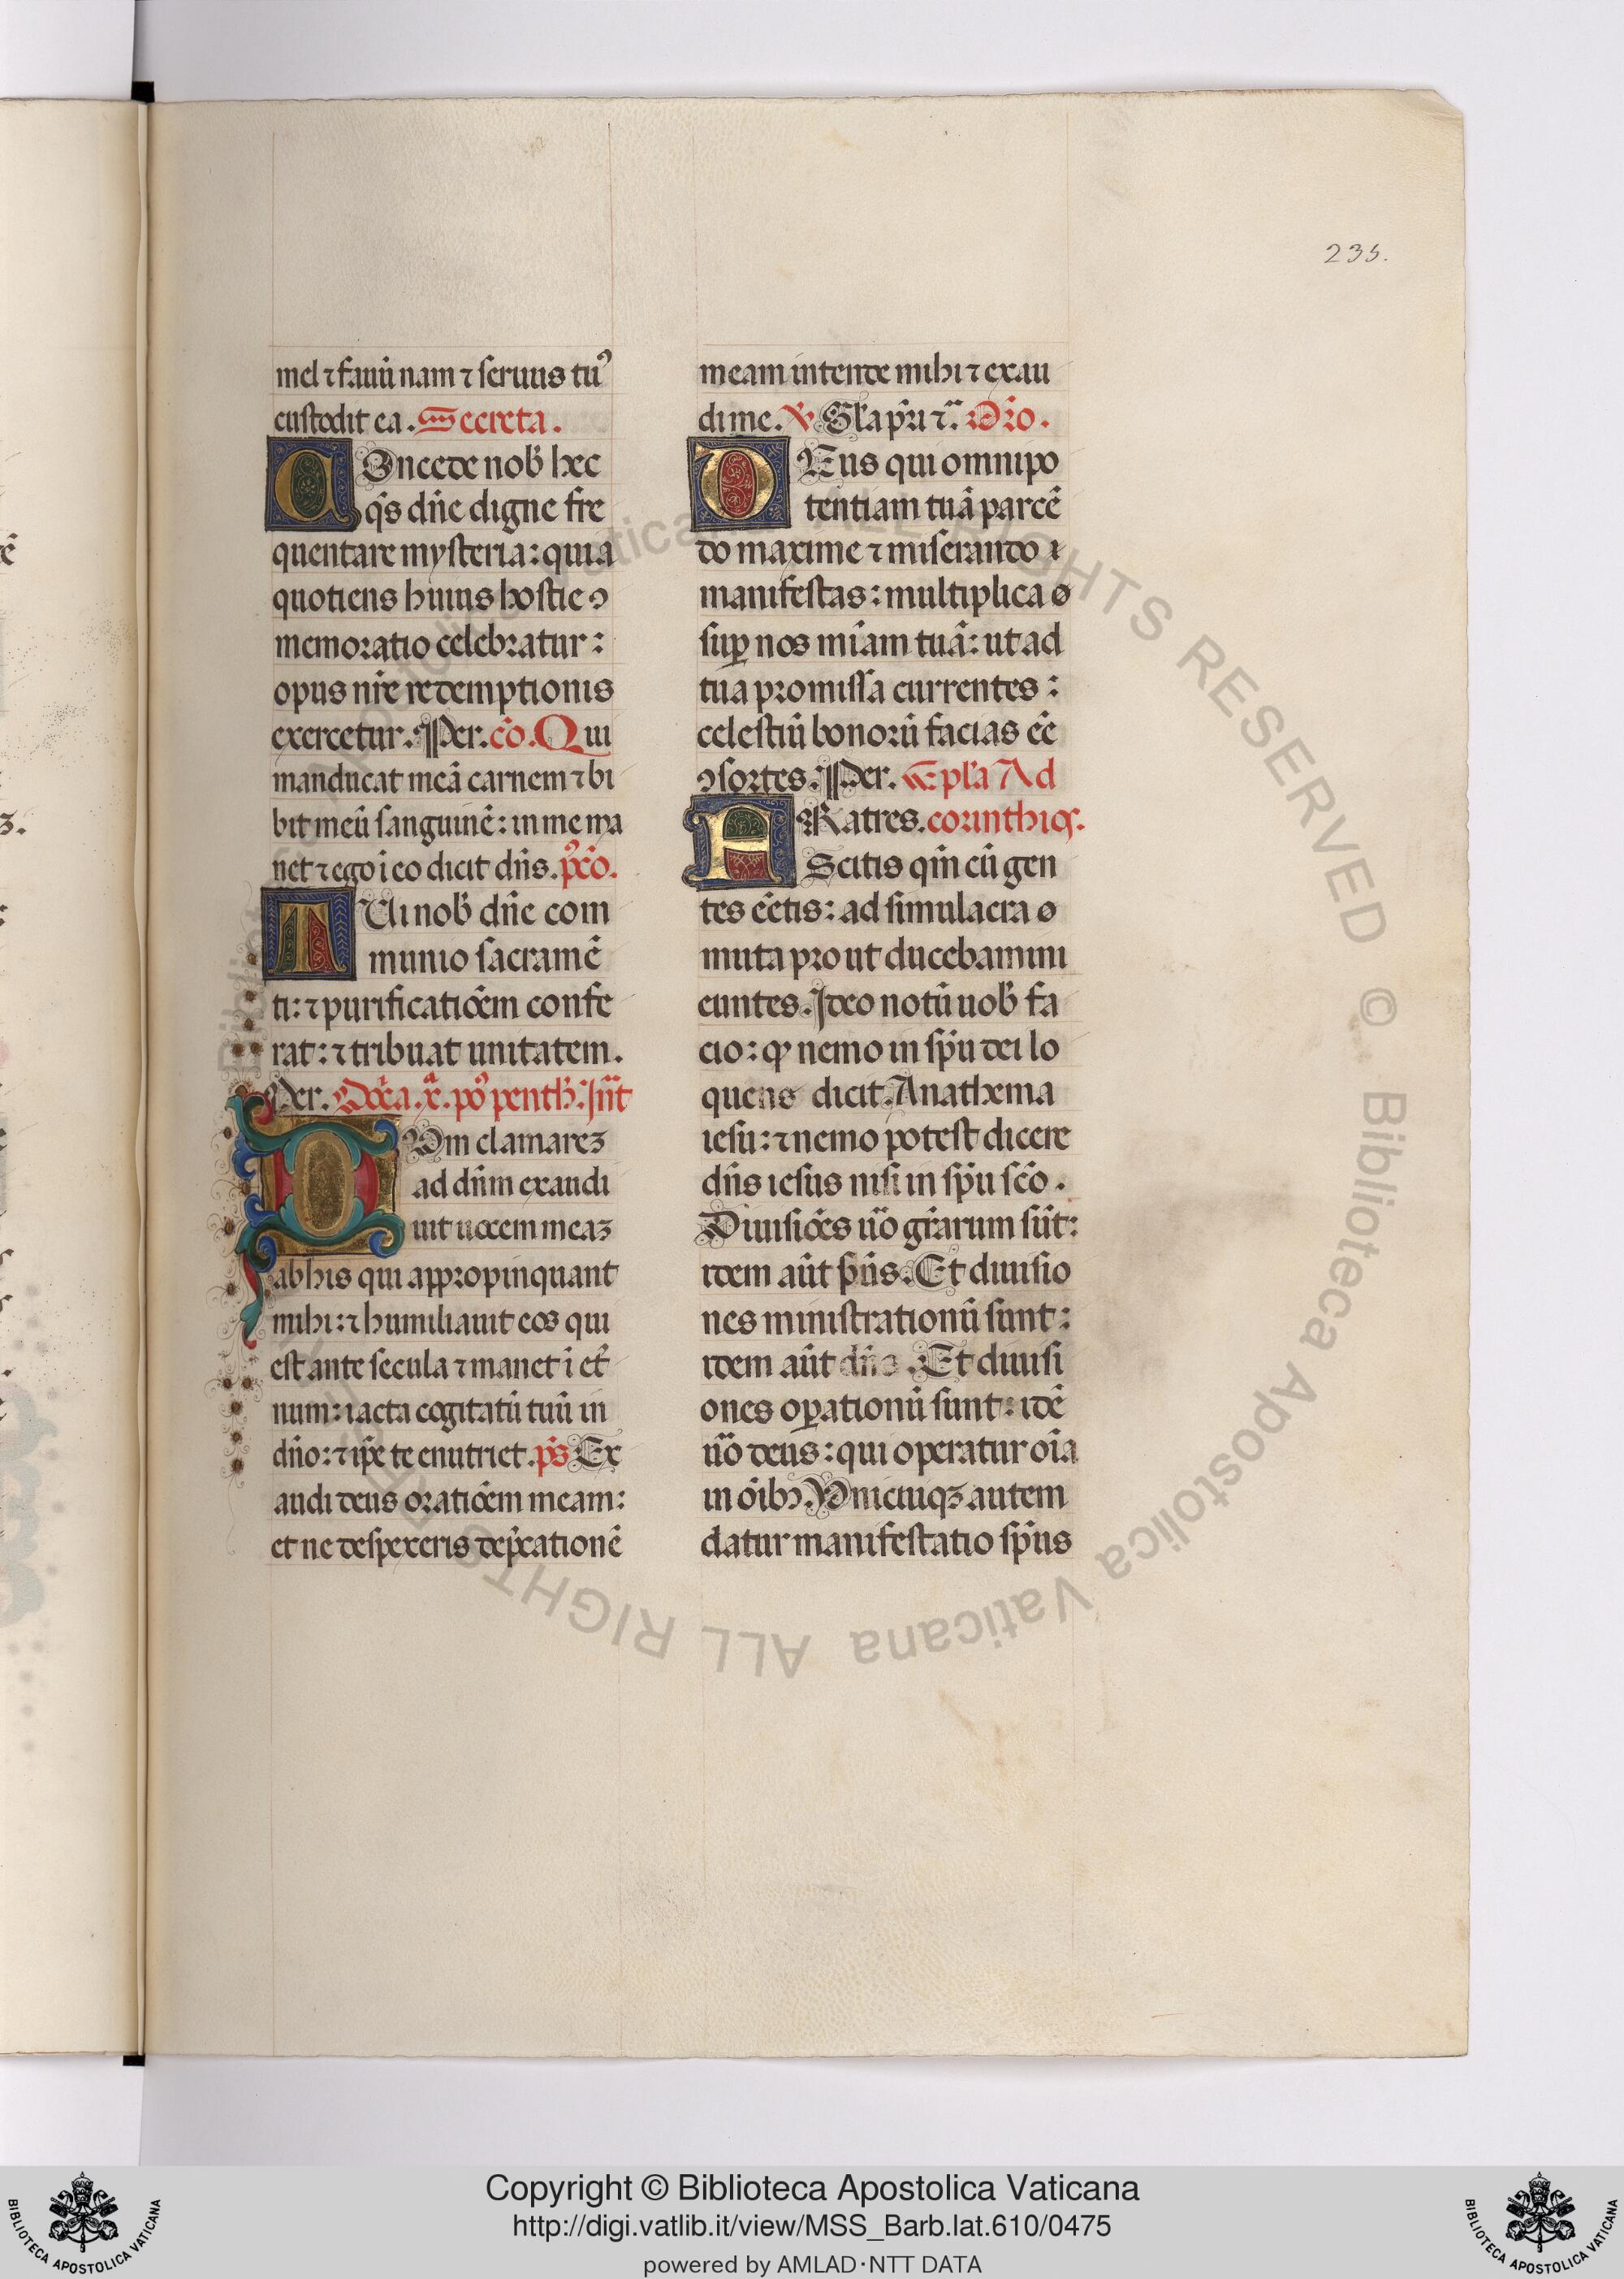 235.
mel ⁊ fauū nam ⁊ seruus tuꝰ
custodit ea. Secreta.
COncede nob̄ hec
q̄s dn̄e digne fre
quentare mysteria: quia
quotiens huius hostie ↄ
memoratio celebratur:
opus nr̄e redemptionis
exercetur. Per. cō. Qui
manducat meā carnem ⁊ bi
bit meū sanguinē: in me ma
net ⁊ ego ī eo dicit dn̄s. pꝰcō.
TUi nob̄ dn̄e com
munio sacramē
ti: ⁊ purificatiōem confe
rat: ⁊ tribuat unitatem.
Per. Dn̄ca. x. pꝰ penth̄. Int̄
DUm clamareꝫ
ad dn̄m exaudi
uit uocem meaꝫ
ab his qui appropinquant
mihi: ⁊ humiliauit eos qui
est ante secula ⁊ manet ī et̄
num: iacta cogitatū tuū in
dn̄o: ⁊ ip̄e te enutriet. ps̄ Ex
audi deus oratiōem meam:
et ne despexeris dep̄cationē
meam intende mihi ⁊ exau
di me. ℣ Gl̄a pr̄i ⁊c̄. Or̄o.
DEus qui omnipo
tentiam tuā parcē
do maxime ⁊ miserando
manifestas: multiplica
suꝑ nos mīam tuā: ut ad
tua promissa currentes:
celestiū bonorū facias eē
ↄsortes. Per. Epl̄a Ad
FRatres. corinthioꝝ.
Scitis qm̄ cū gen
tes eētis: ad simulacra
muta prout ducebamini
euntes. Ideo notū uob̄ fa
cio: ꝙ nemo in sp̄u dei lo
quens dicit. Anathema
iesu: ⁊ nemo potest dicere
dn̄s iesus nisi in sp̄u scō.
Diuisiōes ūo gr̄arum sūt:
idem aūt sp̄us. Et diuisio
nes ministrationū sunt:
idem aūt dn̄s. Et diuisi
ones oꝑationū sunt: idē
ūo deus: qui operatur oīa
in oībꝫ. Unicuiqꝫ autem
datur manifestatio sp̄us
Biblioteca Apostolica Vaticana ALL RIGHTS RESERVED © Biblioteca Apostolica Vaticana ALL RIGHTS
Copyright © Biblioteca Apostolica Vaticana
http://digi.vatlib.it/view/MSS_Barb.lat.610/0475
powered by AMLAD·NTT DATA
BIBLIOTECA APOSTOLICA VATICANA
BIBLIOTECA APOSTOLICA VATICANA